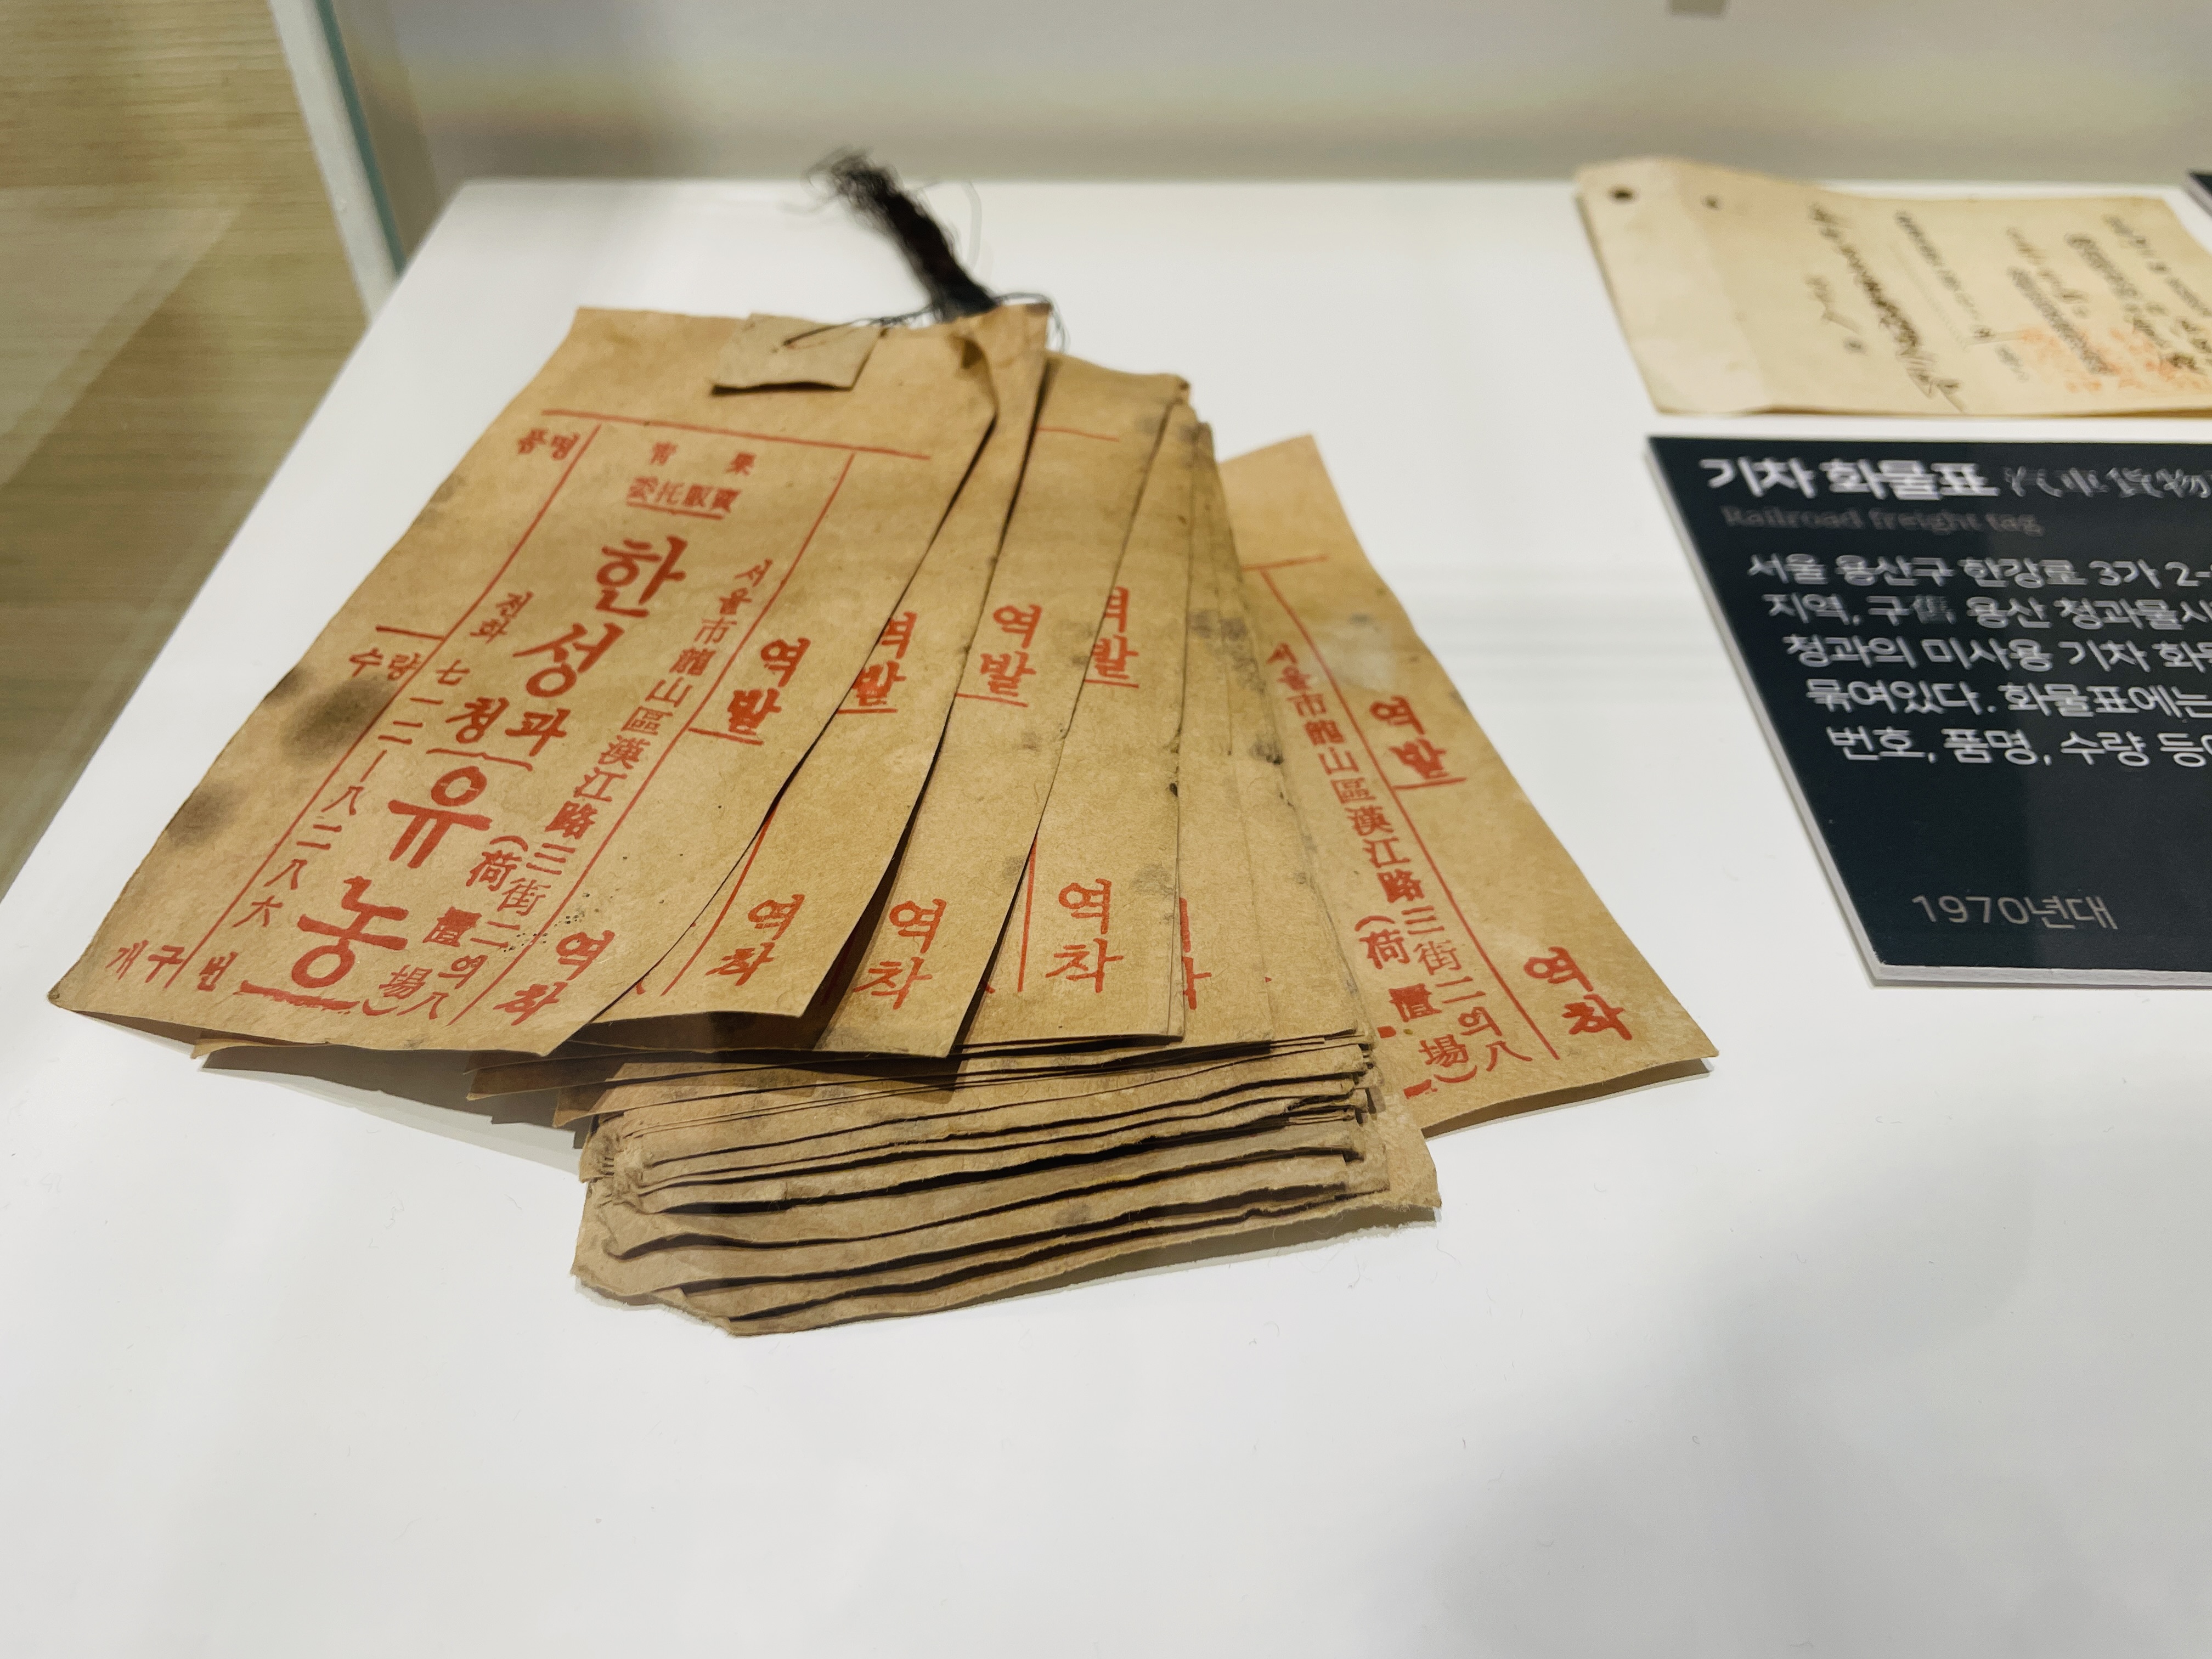 靑 果
委托販賣
한성
청과
유농
서울市龍山區漢江路三街二의八
(荷置場)
전화 七二二一八二八六
품명
수량
개구번
역발
역착
역발
역착
역발
역착
역발
역착
서울市龍山區漢江路三街二의八
(荷置場)
역발
역착
기차 화물표 汽車貨物
Railroad freight tag
서울 용산구 한강로 3가 2-
지역, 구舊 용산 청과물시
청과의 미사용 기차 화물
묶여있다. 화물표에는
번호, 품명, 수량 등
1970년대